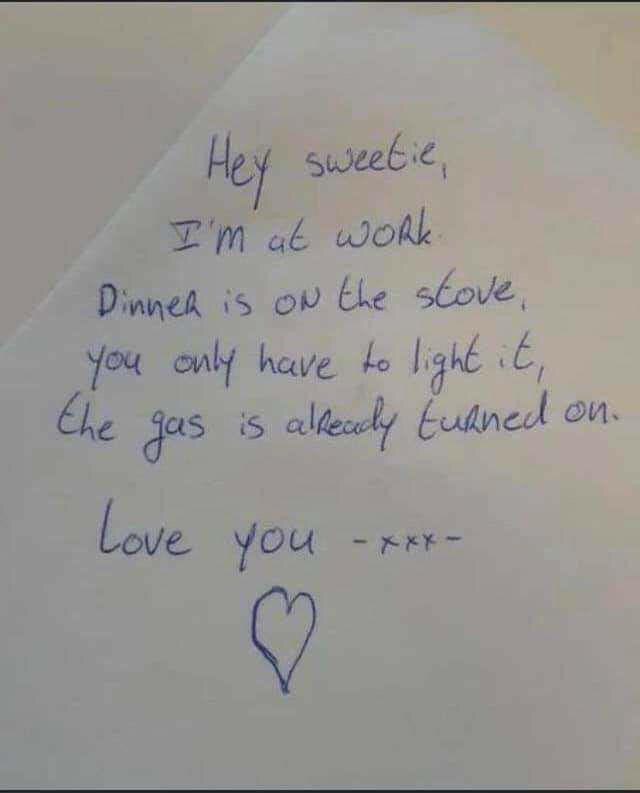 Hey sweetie,
I'm at work.
Dinner is on the stove,
you only have to light it,
the gas is already turned on.
Love you -xxx-